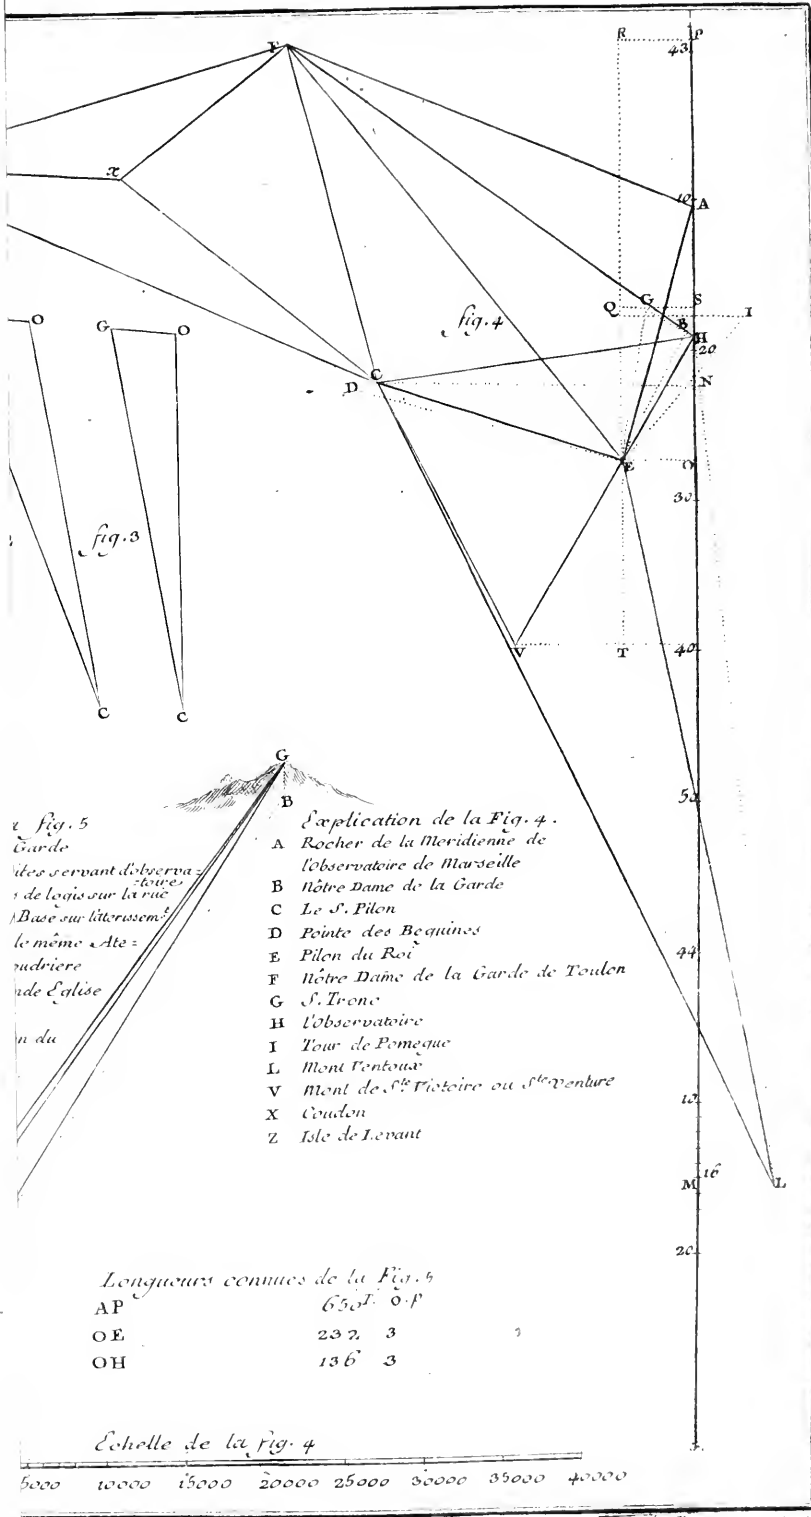 F
R P
43
X
10 A
Q G S I
B
fig. 4
H
20
O G O
C
D
N
E O
30
fig. 3
V T 40
C C
G
50
B
fig. 5
Garde
ites servant d'observa=
toire
de logis sur la rue
Base sur l'aterissemt
le même Ate=
oudriere
nde Eglise
n du
Explication de la Fig. 4.
A Rocher de la Meridienne de
l'Observatoire de Marseille
B Nôtre Dame de la Garde
C Le S. Pilon
D Pointe des Beguines
E Pilon du Roi
F Nôtre Dame de la Garde de Toulon
G S. Tronc
H l'Observatoire
I Tour de Pomegue
L Mont Ventoux
V Mont de Ste. Victoire ou Ste. Venture
X Coudon
Z Isle de Levant
44
10
M 16 L
20
Longueurs connues de la Fig. 5
AP 650T. 0.P
OE 232 3
OH 136 3
Echelle de la fig. 4
5000 10000 15000 20000 25000 30000 35000 40000